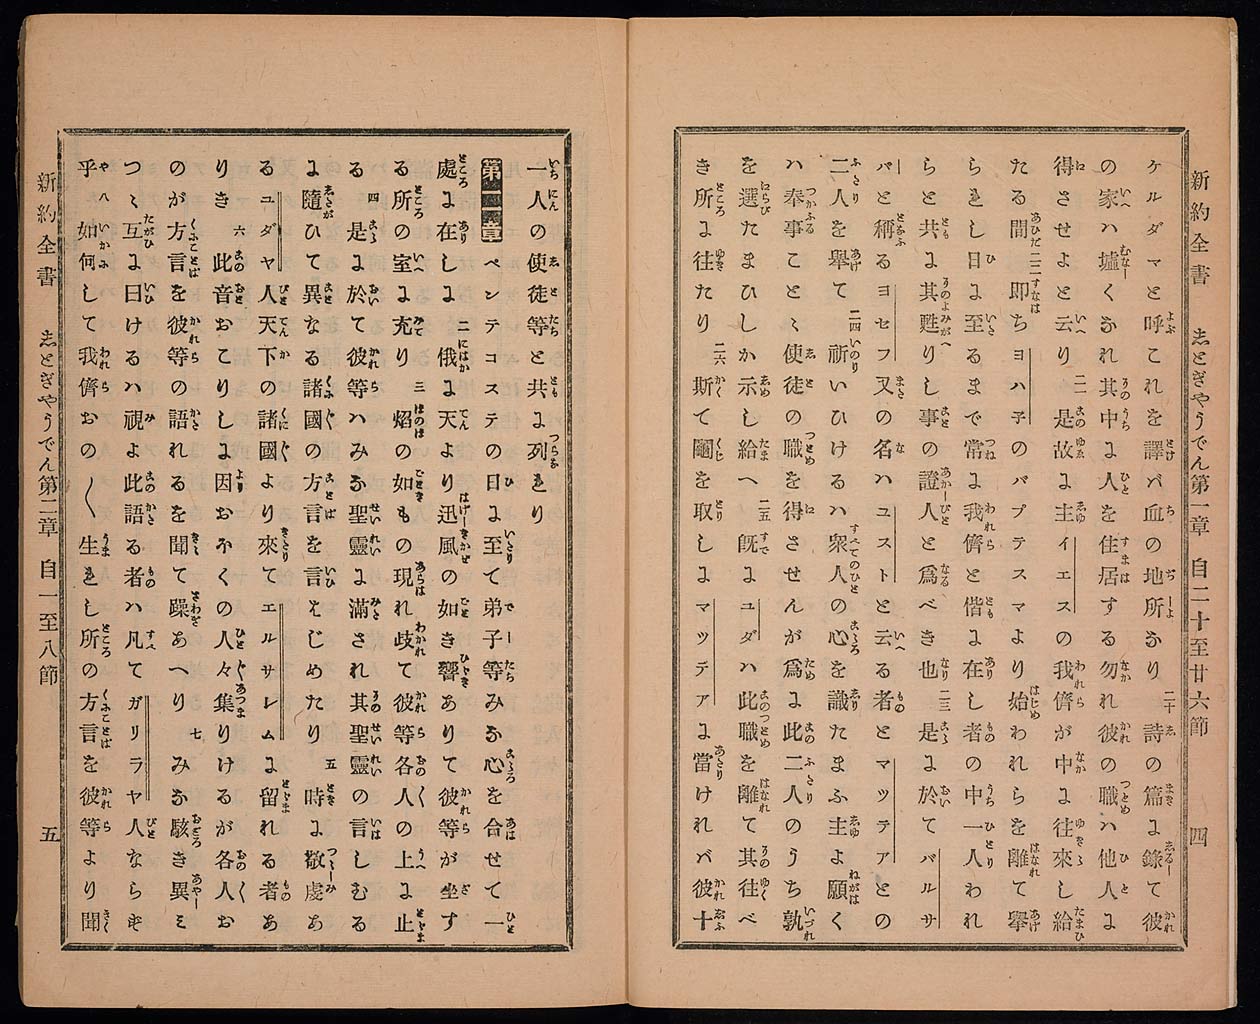 新約全書　志とぎやうでん第一章　自二十至廿六節　四
ケルダマと呼これを譯バ血の地所なり 二十 詩の篇に錄て彼
の家ハ墟くなれ其中に人を住居する勿れ彼の職ハ他人に
得させよと云り 二一 是故に主イエスの我儕が中に往來し給
たる間 二二 即ちヨハ子のバプテスマより始われらを離て擧
られし日に至るまで常に我儕と偕に在し者の中一人われ
らと共に其甦りし事の證人と爲べき也 二三 是に於てバルサ
バと稱るヨセフ又の名ハユストと云る者とマツテアとの
二人を舉て 二四 祈いひけるハ衆人の心を識たまふ主よ願く
ハ奉事ことゝ使徒の職を得させんが爲に此二人のうち孰
を選たまひしか示し給へ 二五 既ユダハ此職を離て其往べ
き所に往たり 二六 斯て鬮を取しにマツテアに當ければ彼十
一人の使徒等と共に列れり
第二章 ペンテコステの日に至て弟子等みな心を合せて一
處に在しに 二 俄に天より迅風の如き響ありて彼等が坐す
る所の室に充り 三 焰の如もの現れ歧て彼等各人の上に止
る 四 是に於て彼等ハみな聖靈に滿され其聖靈の言しむる
に隨ひて異なる諸國の方言を言はじめたり 五 時に敬虔あ
るユダヤ人天下の諸國より來てエルサレムに留れる者あ
りき 六 此音おこりしに因おほくの人々集りけるが各人お
のが方言を彼等の語れるを聞て躁あへり 七 みな駭き異ミ
つゝ互に曰けるハ視よ此語る者ハ凡てガリラヤ人ならずや
乎 八 如何して我儕おの〱生れし所の方言を彼等より聞
新約全書　志とぎやうでん第二章　自一至八節　五